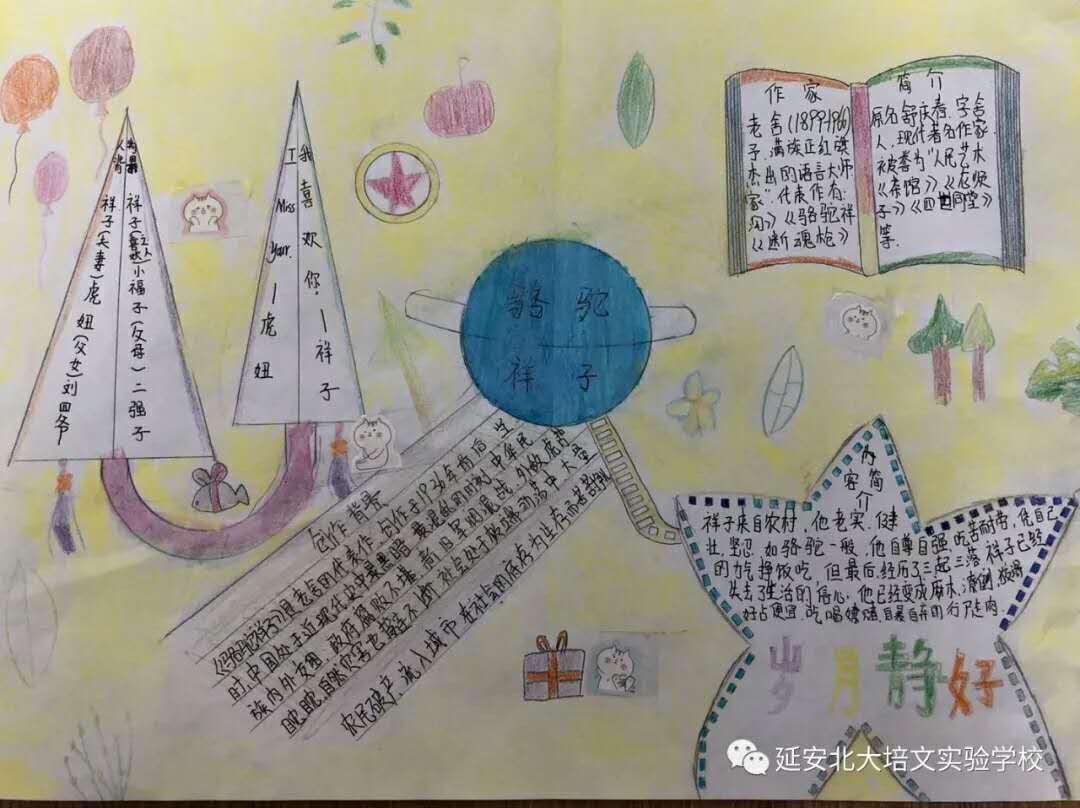 祥子(喜欢之人)小福子(父母)二强子
祥子(夫妻)虎妞(父女)刘四爷
我喜欢你.—祥子
I Miss Your —虎妞
作家 简介
老舍(1899-1966) 原名舒庆春.字舍
子,满族正红旗 人,现代著名作家
杰出的语言大师 被誉为“人民艺术
家”代表作有: 《茶馆》《龙须
沟》《骆驼祥 子》《四世同堂》
《断魂枪》 等.
骆驼
祥子
创作背景
《骆驼祥子》是老舍的代表作,创作于1936年前后.当
时,中国处于近现代史中最黑暗最混乱的时期,中华民
族内外交困,政府腐败不堪
自然灾害也接连不断,社会处于败坏动荡中,大量
农民破产,流入城市
内容简介
祥子来自农村,他老实、健
壮,坚忍,如骆驼一般,他自尊自强,吃苦耐劳,凭自己
的力气挣饭吃,但最后,经历了三起三落,祥子已经
失去了生活的信心,他已经变成麻木,潦倒,狡猾
好占便宜,吃喝嫖赌,自暴自弃的行尸走肉.
岁月静好
延安北大培文实验学校